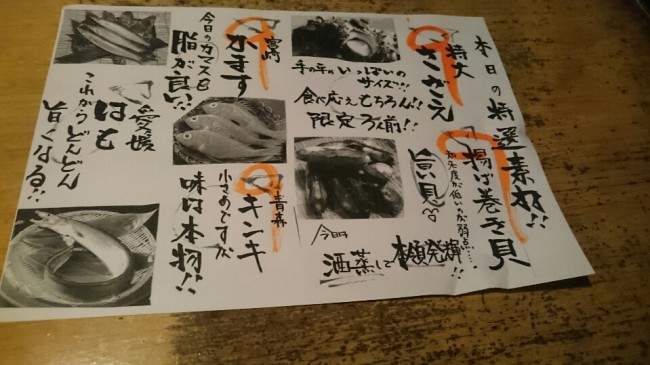 本日の特選素材!!
特大
さざえ
手の平のいっぱいの
サイズ!!
食べ応えもちろん!!
限定ろく個!!
揚げ巻き貝
知名度が低いのが弱点……
旨い貝
今日
酒蒸しで本領発揮!!
宮崎
かます
今日のカマスも
脂が良い!!
青森
キンキ
小さめですが
味は本物!!
愛媛
はも
これからどんどん
旨くなる!!